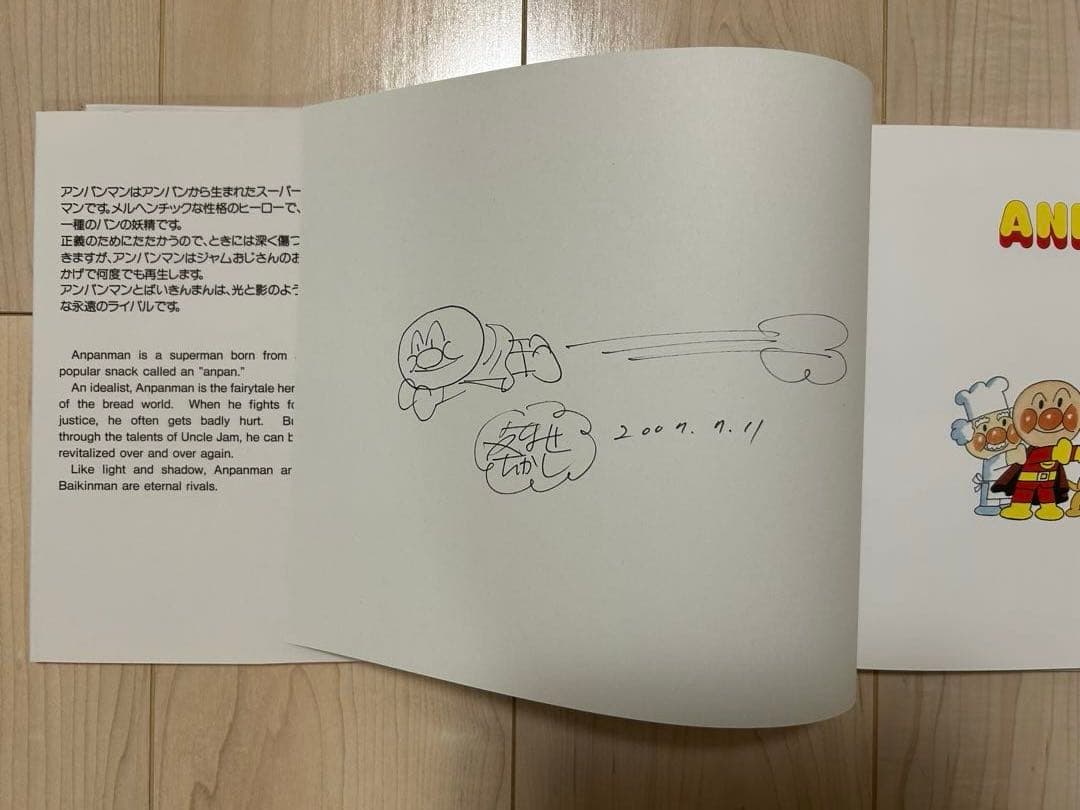 アンパンマンはアンパンから生まれたスーパー
マンです。メルヘンチックな性格のヒーローで、
一種のパンの妖精です。
正義のためにたたかうので、ときには深く傷つ
きますが、アンパンマンはジャムおじさんのお
かげで何度でも再生します。
アンパンマンとばいきんまんは、光と影のよう
な永遠のライバルです。
Anpanman is a superman born from
popular snack called an "anpan."
An idealist, Anpanman is the fairytale her
of the bread world. When he fights fo
justice, he often gets badly hurt. Bu
through the talents of Uncle Jam, he can b
revitalized over and over again.
Like light and shadow, Anpanman an
Baikinman are eternal rivals.
やなせ
たかし
2007.7.11
AN